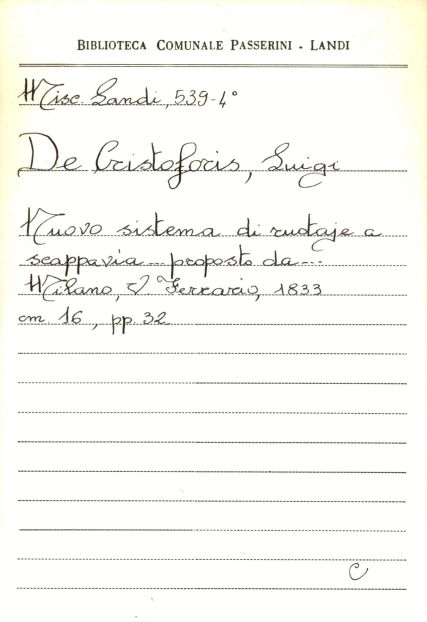 BIBLIOTECA COMUNALE PASSERINI - LANDI
Misc. Landi, 539-4°
De Cristoforis, Luigi
Nuovo sistema di ruotaje a
scappavia ... proposto da ...
Milano, V. Ferrario, 1833
cm 16, pp. 32
C